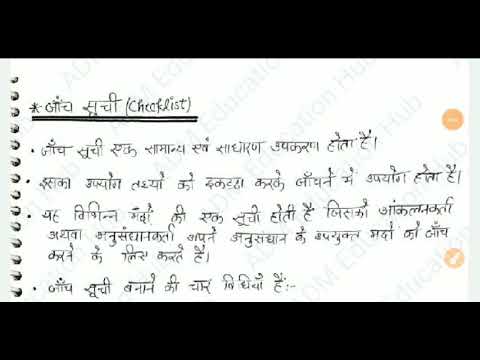 * जाँच सूची (Checklist)
• जाँच सूची एक सामान्य एवं साधारण उपकरण होता है।
• इसका उपयोग तथ्यों को इकट्ठा करके जाँचने में उपयोग होता है।
• यह विभिन्न मदों की एक सूची होती है जिसको आंकलनकर्ता
अथवा अनुसंधानकर्ता अपने अनुसंधान के उपयुक्त मदों को जाँच
करने के लिए करते है।
• जाँच सूची बनाने की चार विधियाँ हैं:-